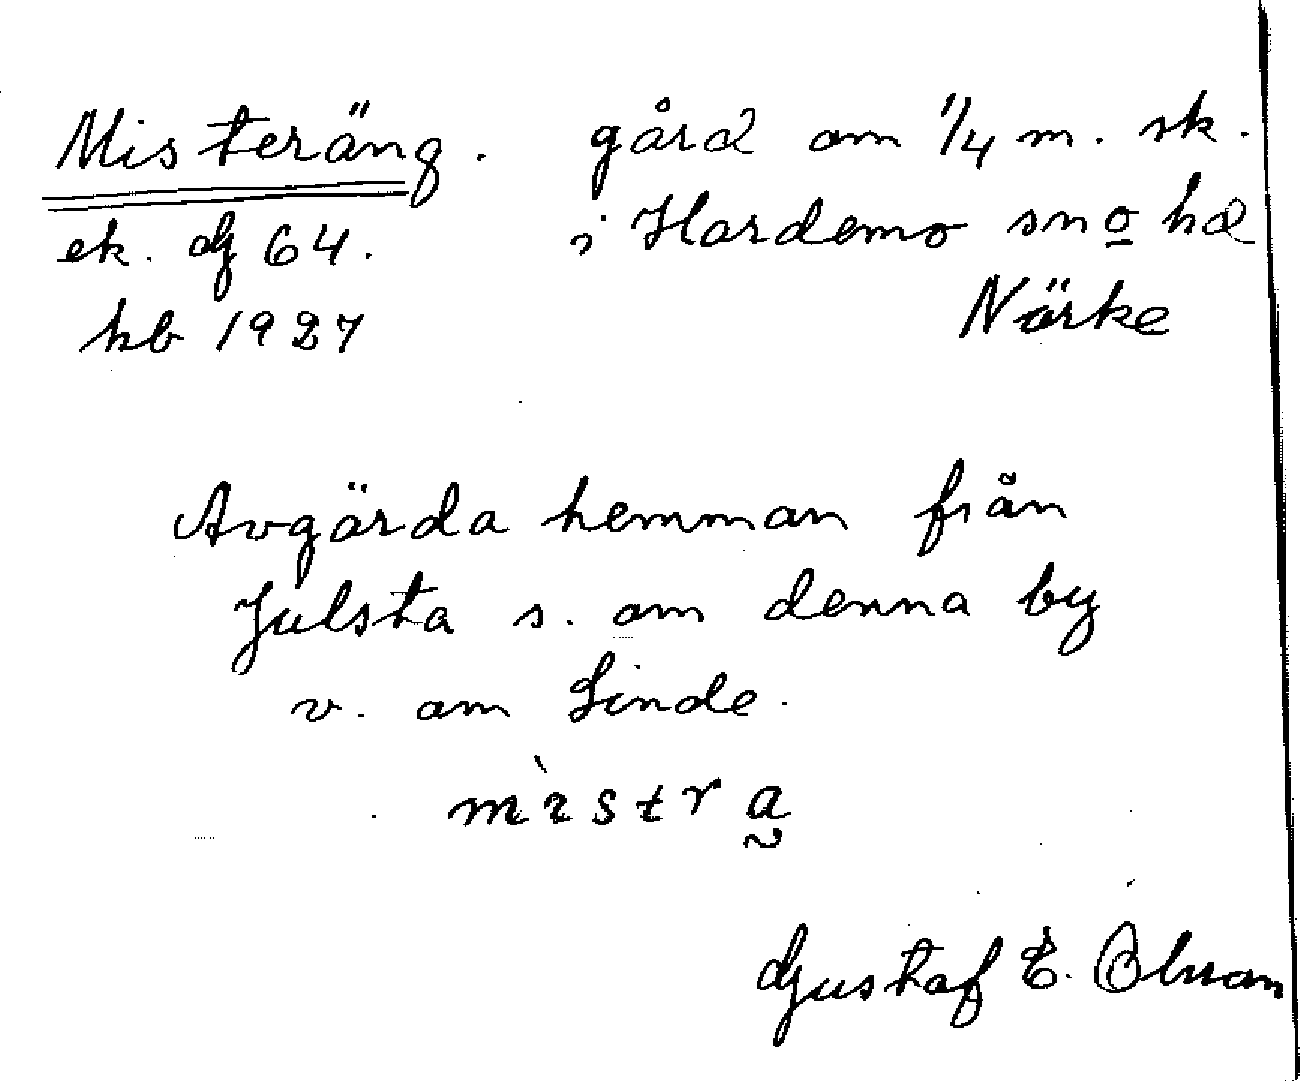 Misteräng. gård om 1/4 m. sk.
ek. G 64. i Hardemo sn o hd
hb 1927 Närke
Avgärda hemman från
Julsta s. om denna by
v. om Linde.
mìstra
Gustaf E. Olsson